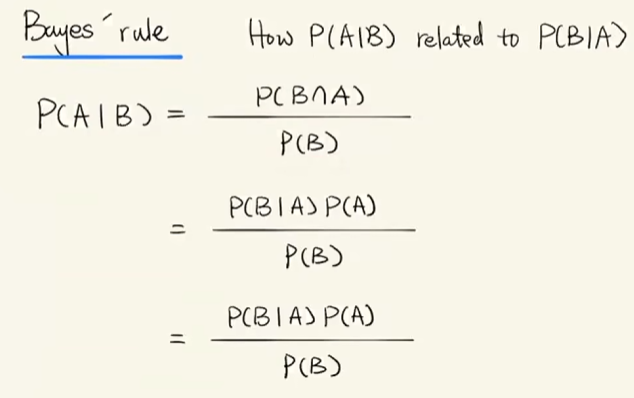 Bayes' rule How P(A|B) related to P(B|A)
P(A|B) = P(B∩A) / P(B)
= P(B|A) P(A) / P(B)
= P(B|A) P(A) / P(B)